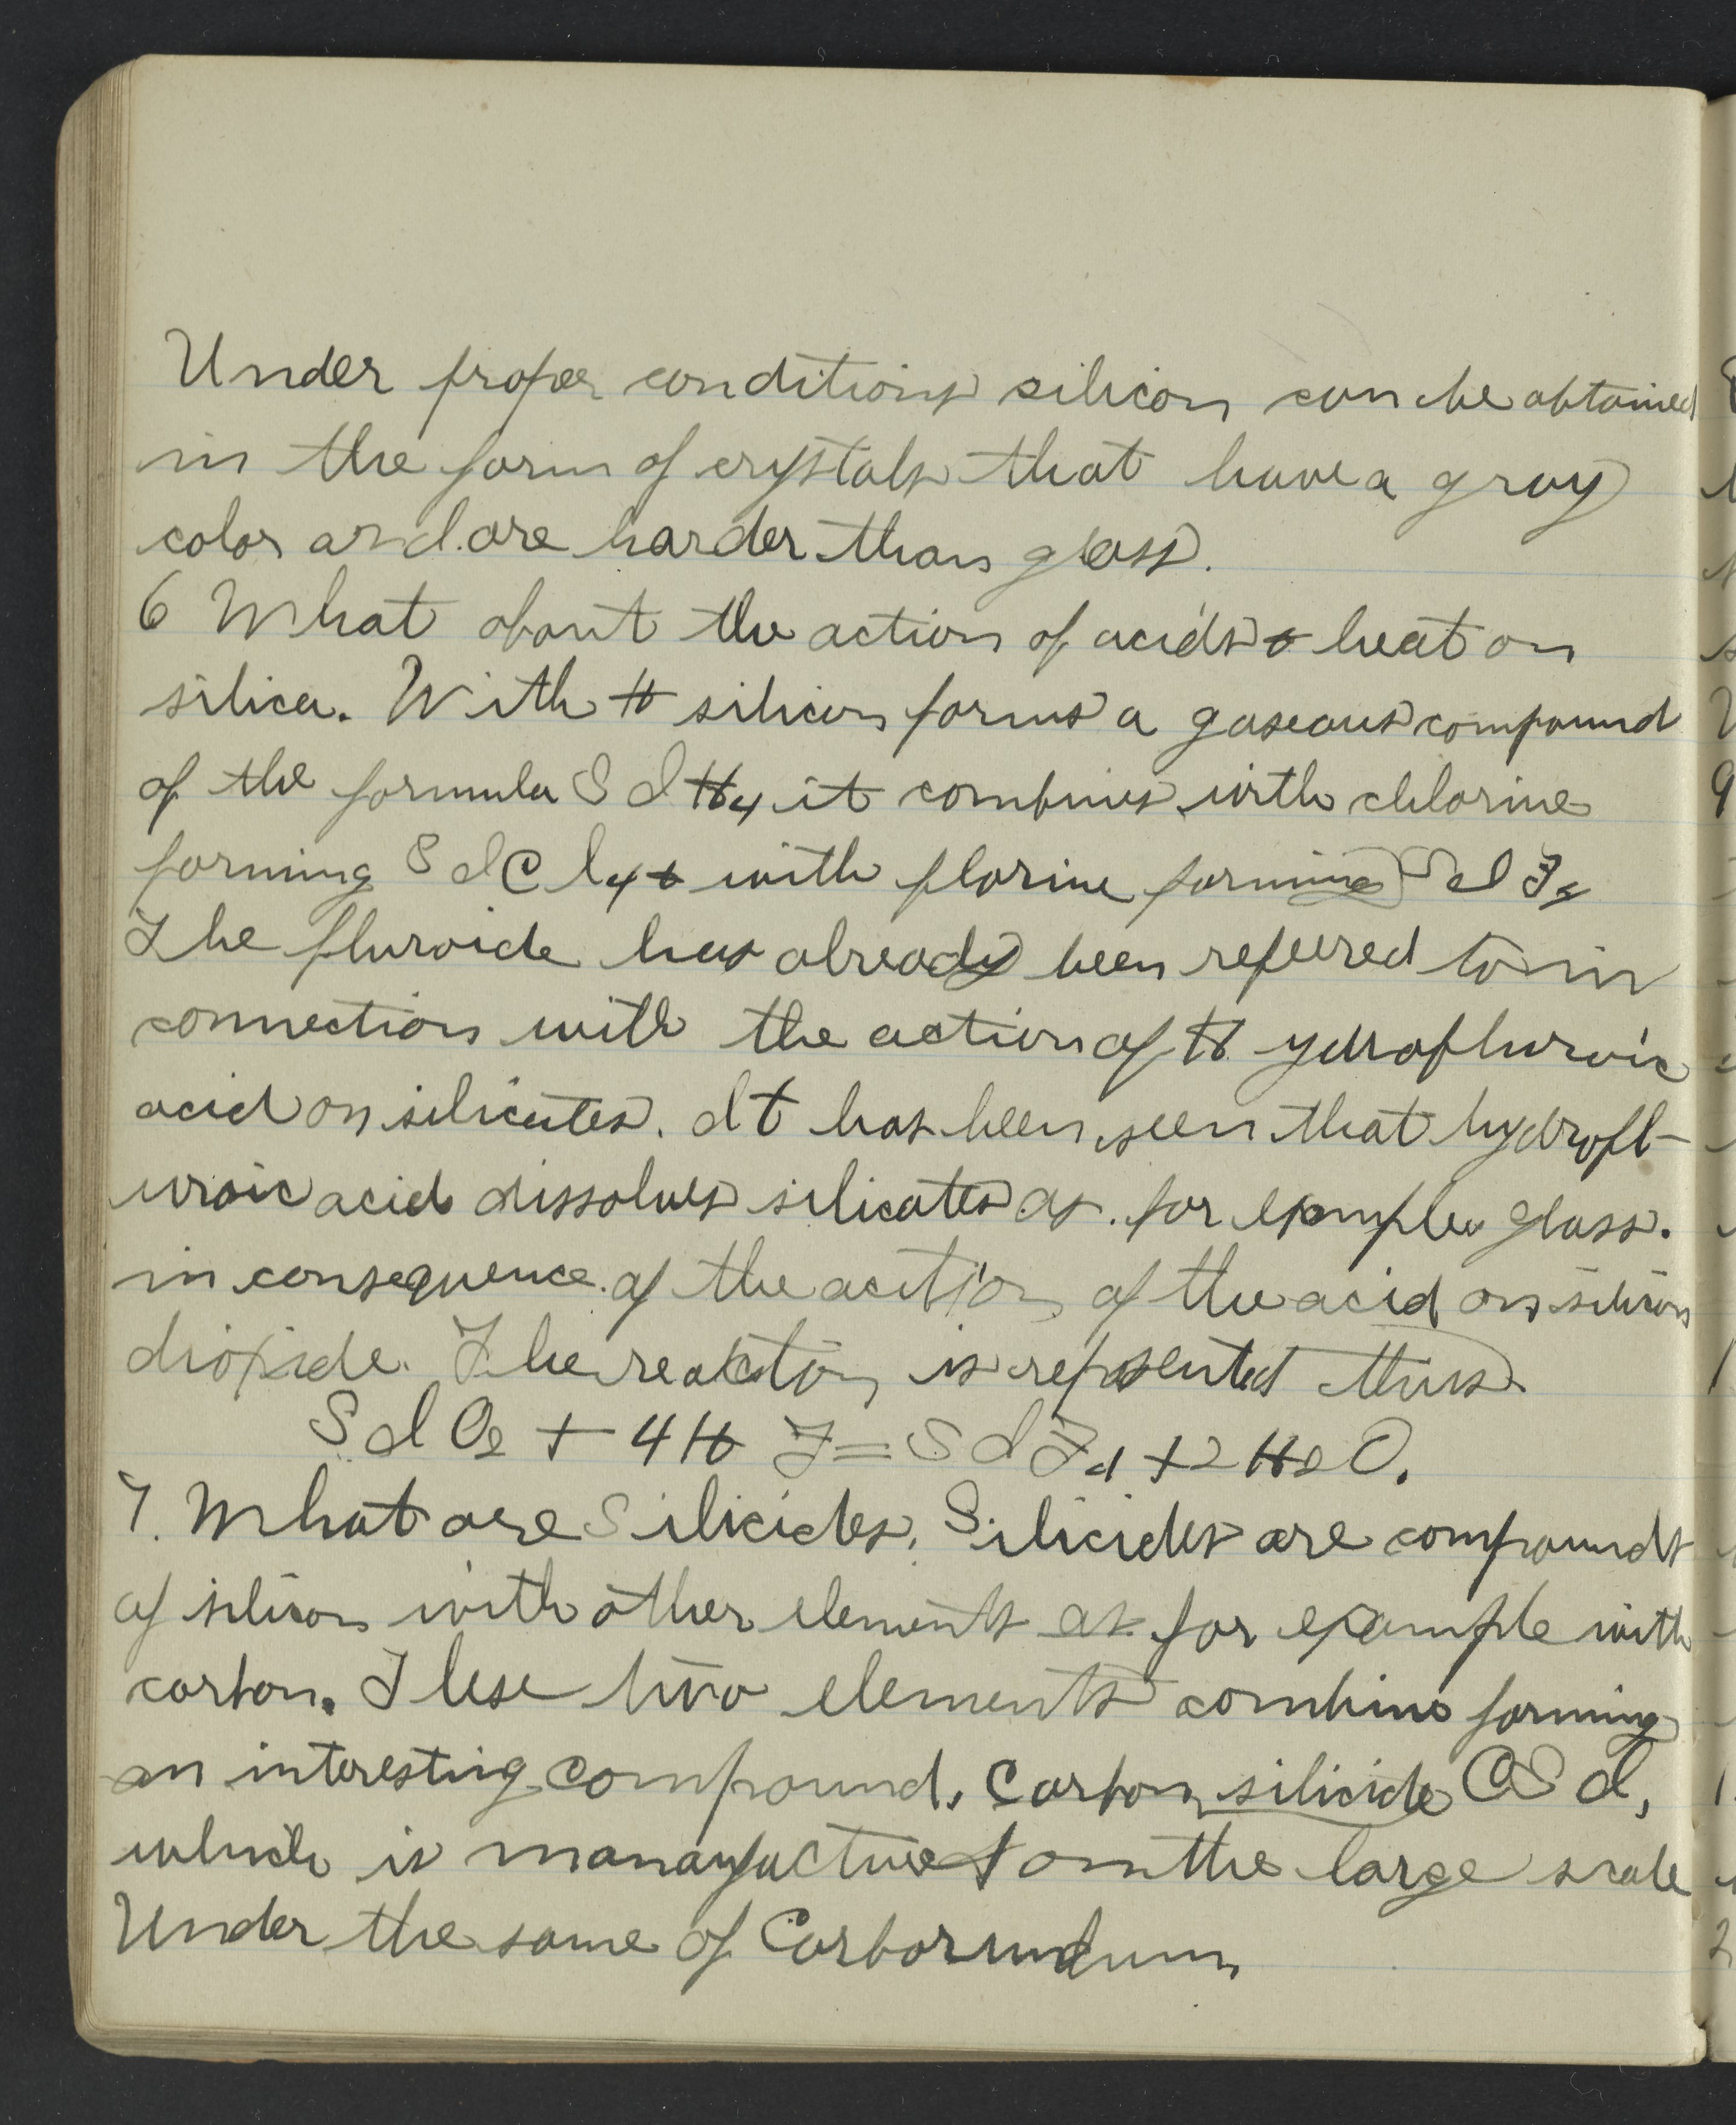 Under proper conditions silicon can be obtained
in the form of crystals that have a gray
color and are harder than glass.
6 What about the action of acids & heat on
silica. With H silicon forms a gaseous compound
of the formula SIH4 it combines with chlorine
forming SICl4 & with florine forming SIF4
The fluroide has already been refeered to in
connection with the action of Hydrofluroic
acid on silicates. It has been seen that hydrofl-
uroic acid dissolves silicates as for example glass.
in consequence of the acition of the acid on silicon
dioxide. The reaction is represented thus.
SIO2 + 4HF = SIF4 + 2H2O.
7. What are Silicides. Silicides are compounds
of silicon with other elements as for example with
carbon. These two elements combine forming
an interesting compound, Carbon silicide CSI,
which is manufactured on the large scale
Under the same of Carborundum